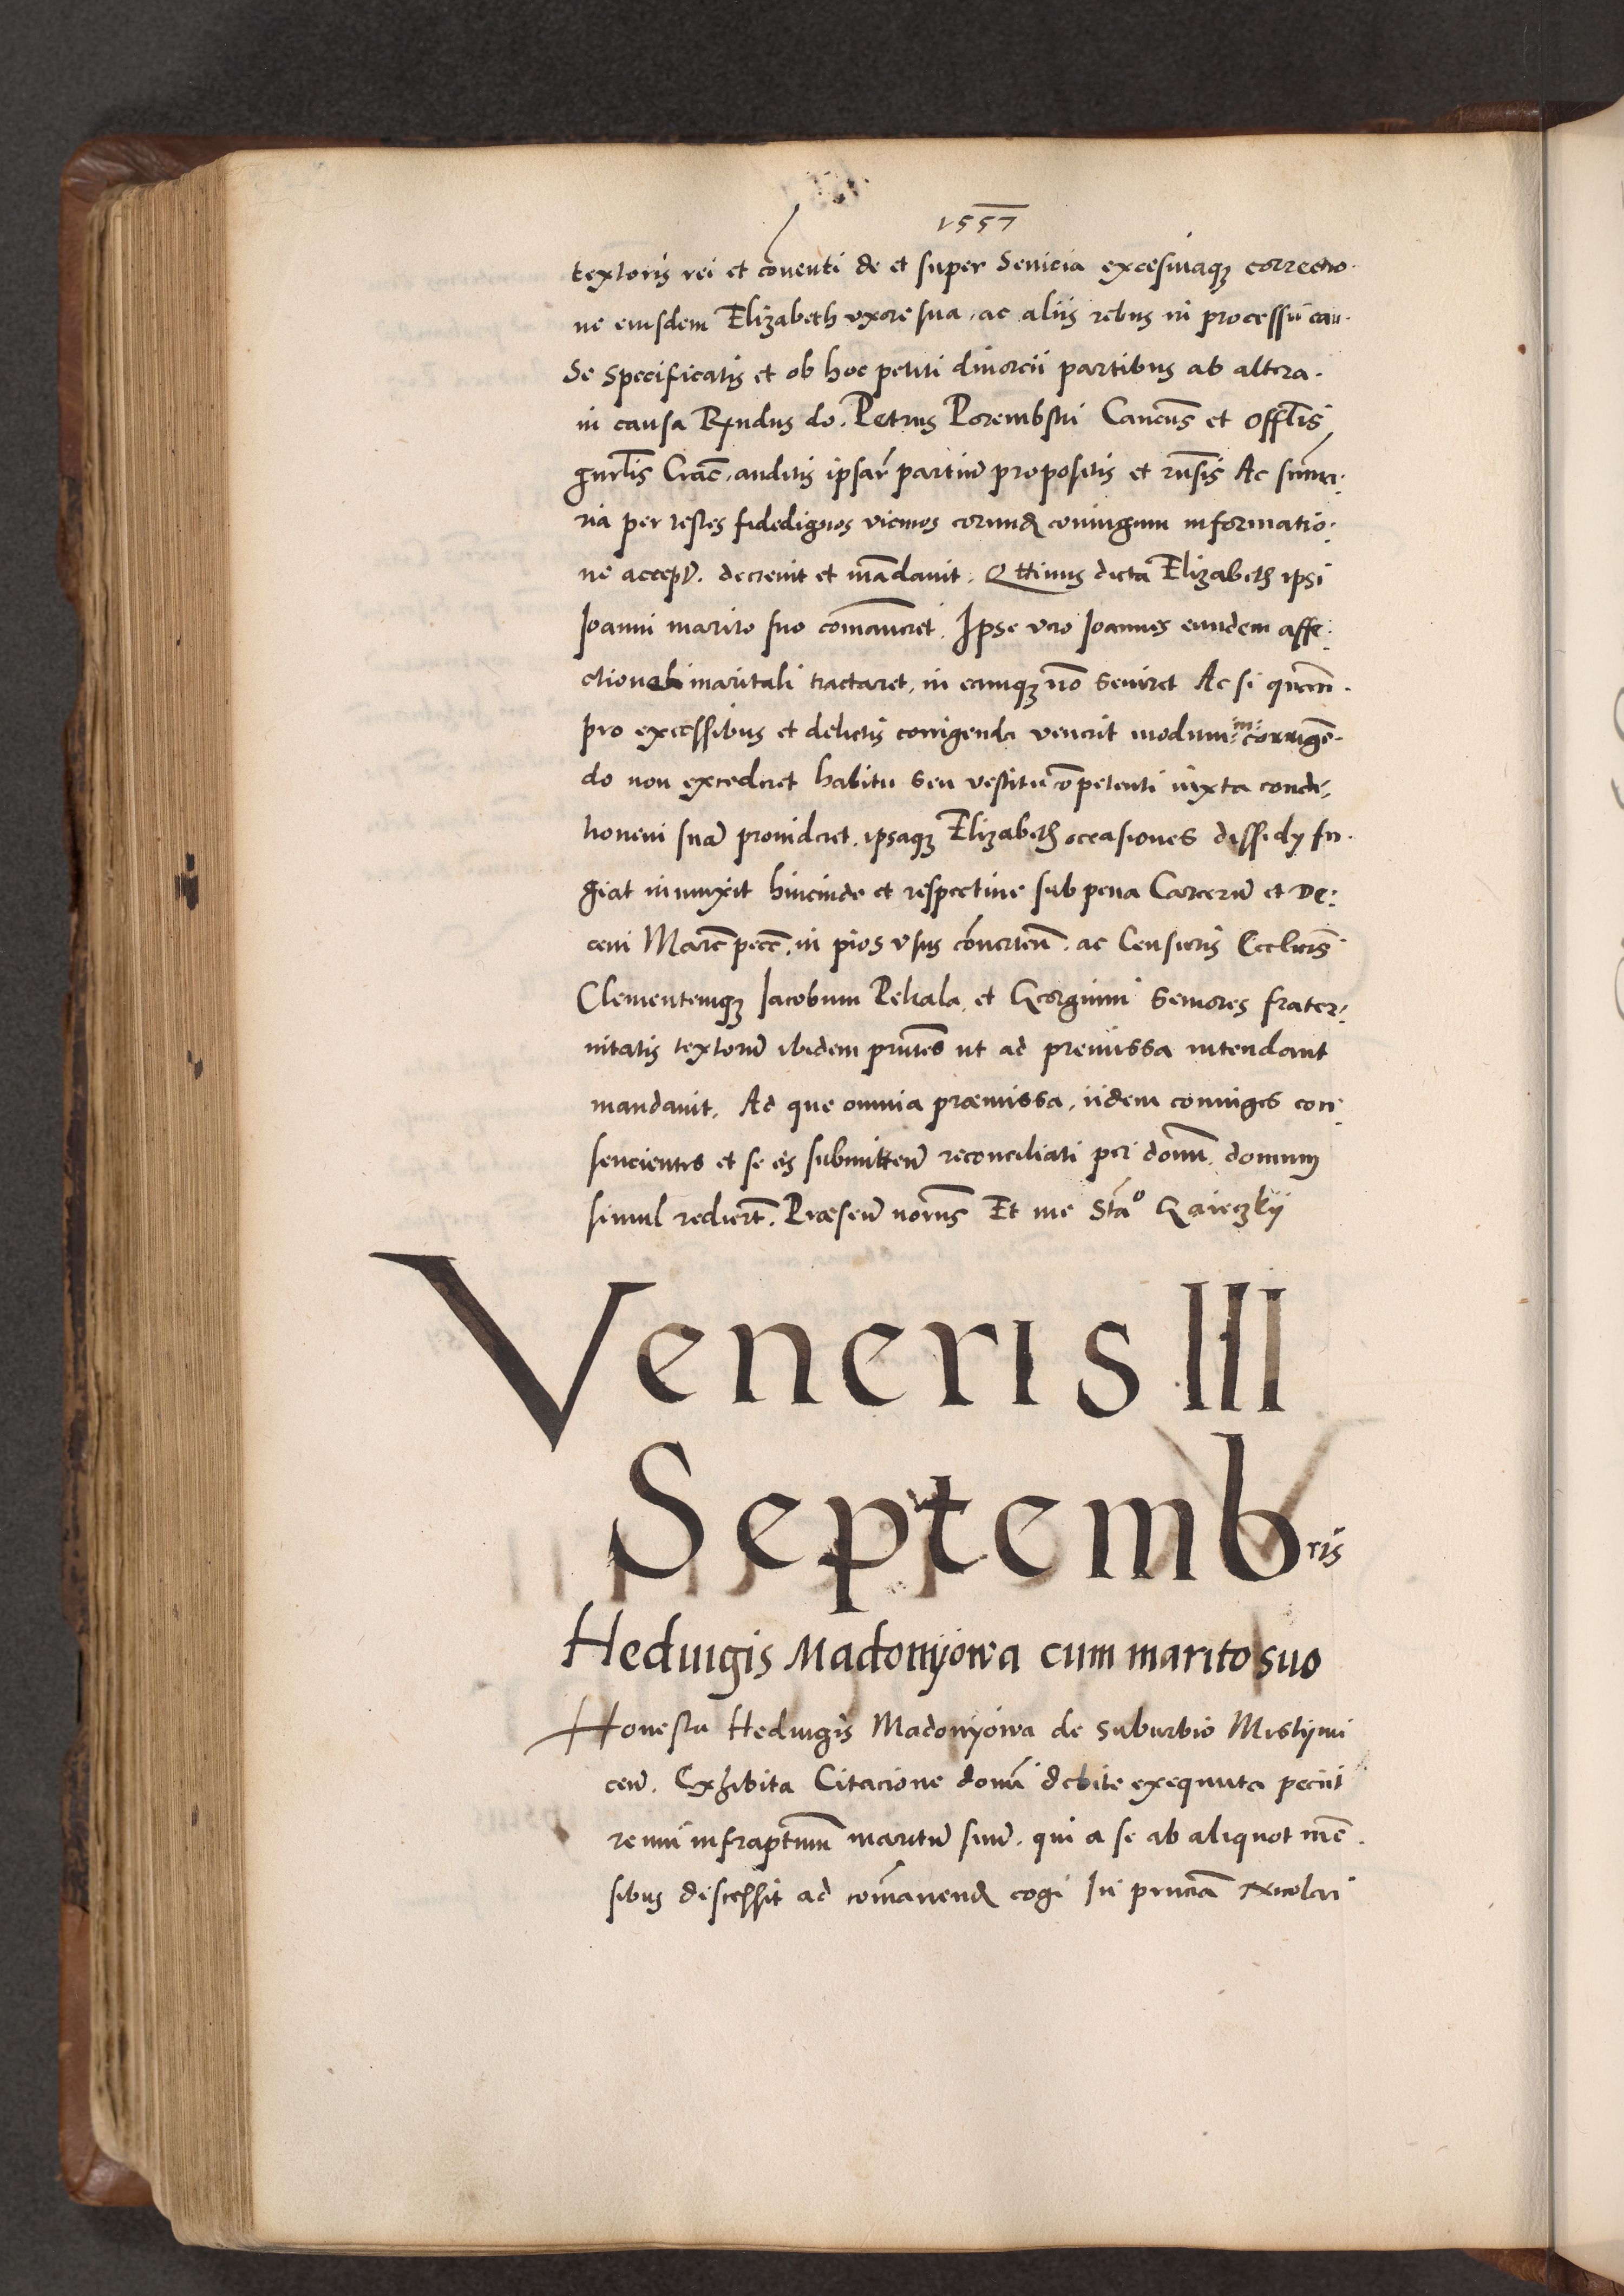 1557
textoris rei et cōventi de et super Sevicia excesivaqꝫ correctio-
ne eiusdem Elizabeth vxore sua, ac aliis rebus in processu cau-
se specificatis et ob hoc petiti divorcii partibus ab altera.
in causa Rndus do. Petrus Porembski Cancus et Offlis
gnrlis Crac. auditis ipsar partiū propositis et rūsis Ac summa-
ria per testes fidedignos vicinos eorundꝫ coniugum informatio-
ne accept. decrevit et mādavit. Qttinus dicta Elizabeth ipsi
Joanni marito suo comāneret. Ipse vero Joannes eandem affe-
ctione maritali tractaret, in eamqꝫ nō seviret Ac si quando
pro excessibus et delictis corrigenda venerit modum in corrigē-
do non excederet habitu seu vestitu cōpetenti iuxta condi-
tionem suā provideret, ipsaqꝫ Elizabeth occasiones dissidy fu-
giat iniunxit hincinde et respective sub pena Carcerū et De-
cem Marc pece, in pios vsus convertēn. ac Censuris Eccliis
Clementemqꝫ Jacobum Pekala, et Georgium Seniores frater-
nitatis textorū ibidem prntes ut ad premissa intendant
mandavit. Ad que omnia præmissa, iidem coniuges con-
sencientes et se eis submitten reconciliati per domū. domum
simul rediert. Præsen norūs Et me Sta° Gaieczkij
Veneris III
Septembris
Hedvigis Madonyowa cum marito suo
Honesta Hedvigis Madonyowa de suburbio Mislyimi
cen. Exhibita Citacione domi debite exequuta peciit
reum infraptum maritū suū. qui a se ab aliquot mē-
sibus discessit ad comanendꝫ cogi In pnciā Nicolai